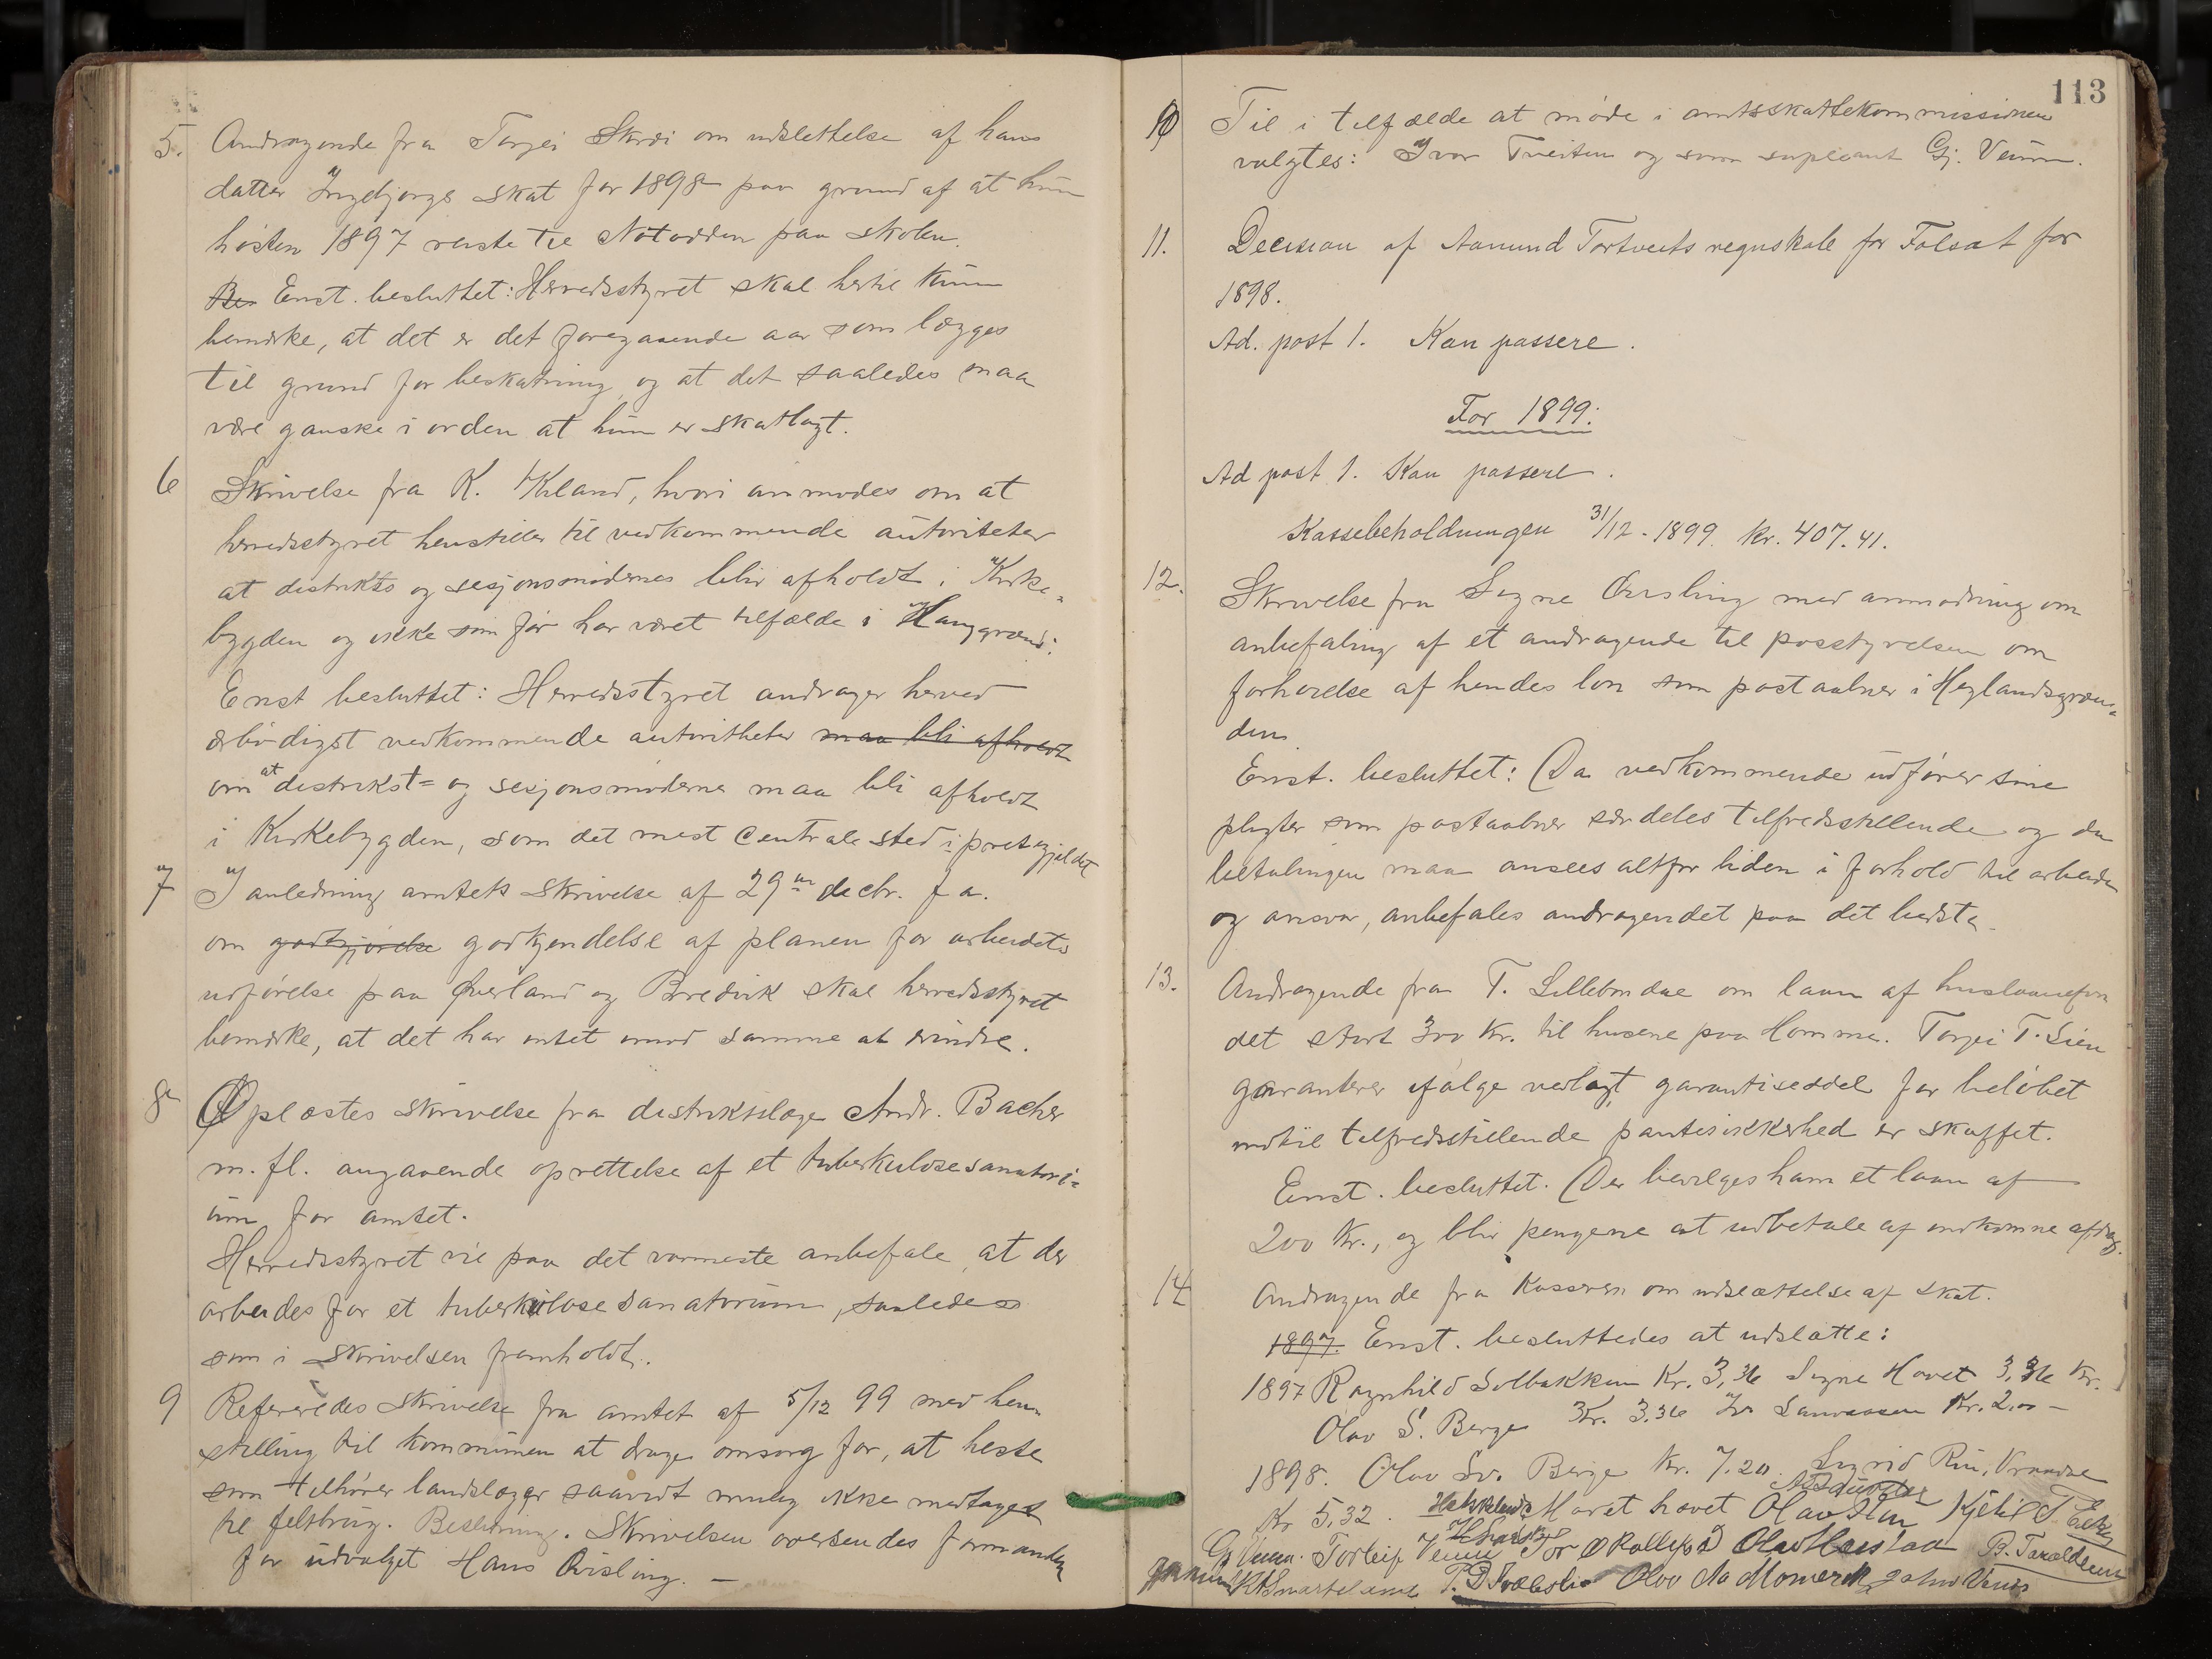 5. Andragende fra Torjei Skrei om udslettelse af hans
datter Ingebjorgs skat for 1898 paa grund af at hun
høsten 1897 reiste til Notodden paa skolen.
Bes Enst. besluttet: Herredsstyret skal hertil kun
bemærke, at det er det foregaaende aar som lægges
til grund for beskatning og at det saaledes maa
være ganske i orden at hun er skatlagt.
6 Skrivelse fra K. Kiland, hvori anmodes om at
herredsstyret henstiller til vedkommende autoriteter
at distrikts og sesjonsmødernes blir afholdt i Kirke-
bygden og ikke som før har været tilfælde i Hauggrænd.
Enst besluttet: Herredsstyret andrager herved
ærbødigst vedkommende autoritheter maa bli afholdt
om at distrikst= og sesjonsmøderne maa bli afholdt
i Kirkebygden, som det mest centrale sted i prestegjeldet
7 I anledning amtets skrivelse af 29de decbr. f a.
om godtgjørelse godkjendelse af planen for arbeidets
udførelse paa Øverland og Bredvik skal herredsstyret
bemærke, at det har intet imod samme at erindre.
8 Oplæstes skrivelse fra distriktslæge Andr. Backer
m. fl. angaaende oprettelse af et tuberkulosesanatori=
um for amtet.
Herredsstyret vil paa det varmeste anbefale, at der
arbeides for et tuberkulosesanatorium, saaledes
som i skrivelsen fremholdt.
9 Refereredes skrivelse fra amtet af 5/12 99 med hen-
stilling til kommunen at drage omsorg for, at heste
som tilhører landslæger saavidt mulig ikke medtages
til feltbrug. Beslutning. Skrivelsen oversendes formanden
for udvalget Hans Qvisling. —
113
10 Til i tilfælde at møde i amtsskattekommissionen
valgtes: Ivar Tveiten og som supleant Gj. Veum.
11. Decision af Aanund Tortveits regnskab for Folsæt for
1898.
Ad. post 1. Kan passere.
For 1899:
Ad post 1. Kan passere.
Kassebeholdningen 31/12 - 1899. kr. 407.41.
12. Skrivelse fra Signe Qvisling med anmodning om
anbefaling af et andragende til poststyrelsen om
forhøielse af hendes løn som postaabner i Heglandsgræn=
den
Enst. besluttet: Da vedkommende udfører sine
pligter som postaabner særdeles tilfredsstillende og da
betalingen maa ansees altfor liden i forhold til arbeide
og ansvar, anbefales andragendet paa det bedste.
13. Andragende fra T. Lillebondal om laan af huslaanefon
det stort 300 kr. til husene paa Homme. Torjei T. Lien
garanterer ifølge vedlagt garantiseddel for beløbet
indtil tilfredsstillende pantesikkerhed er skaffet.
Enst. besluttet. Der bevilges ham et laan af
200 Kr., og blir pengene at udbetale af indkomne afdrag.
14 Andragende fra Kasseren om udslættelse af skat.
1897. Enst. besluttedes at udslætte:
1897 Ragnhild Solbakken Kr. 3,36 Signe Hovet 3,36 Kr.
Olav S. Berge Kr. 3.36 Kr. 2.00 -
1898. Olav Sv. Berge Kr. 7.20. Sigrid
Kr 5,32. Hovet Olav Lien Kjetil T.
Gj Veum. Torleif Veum Tor Olav B. Taraldsen
Olav Aa Momrak John Veum